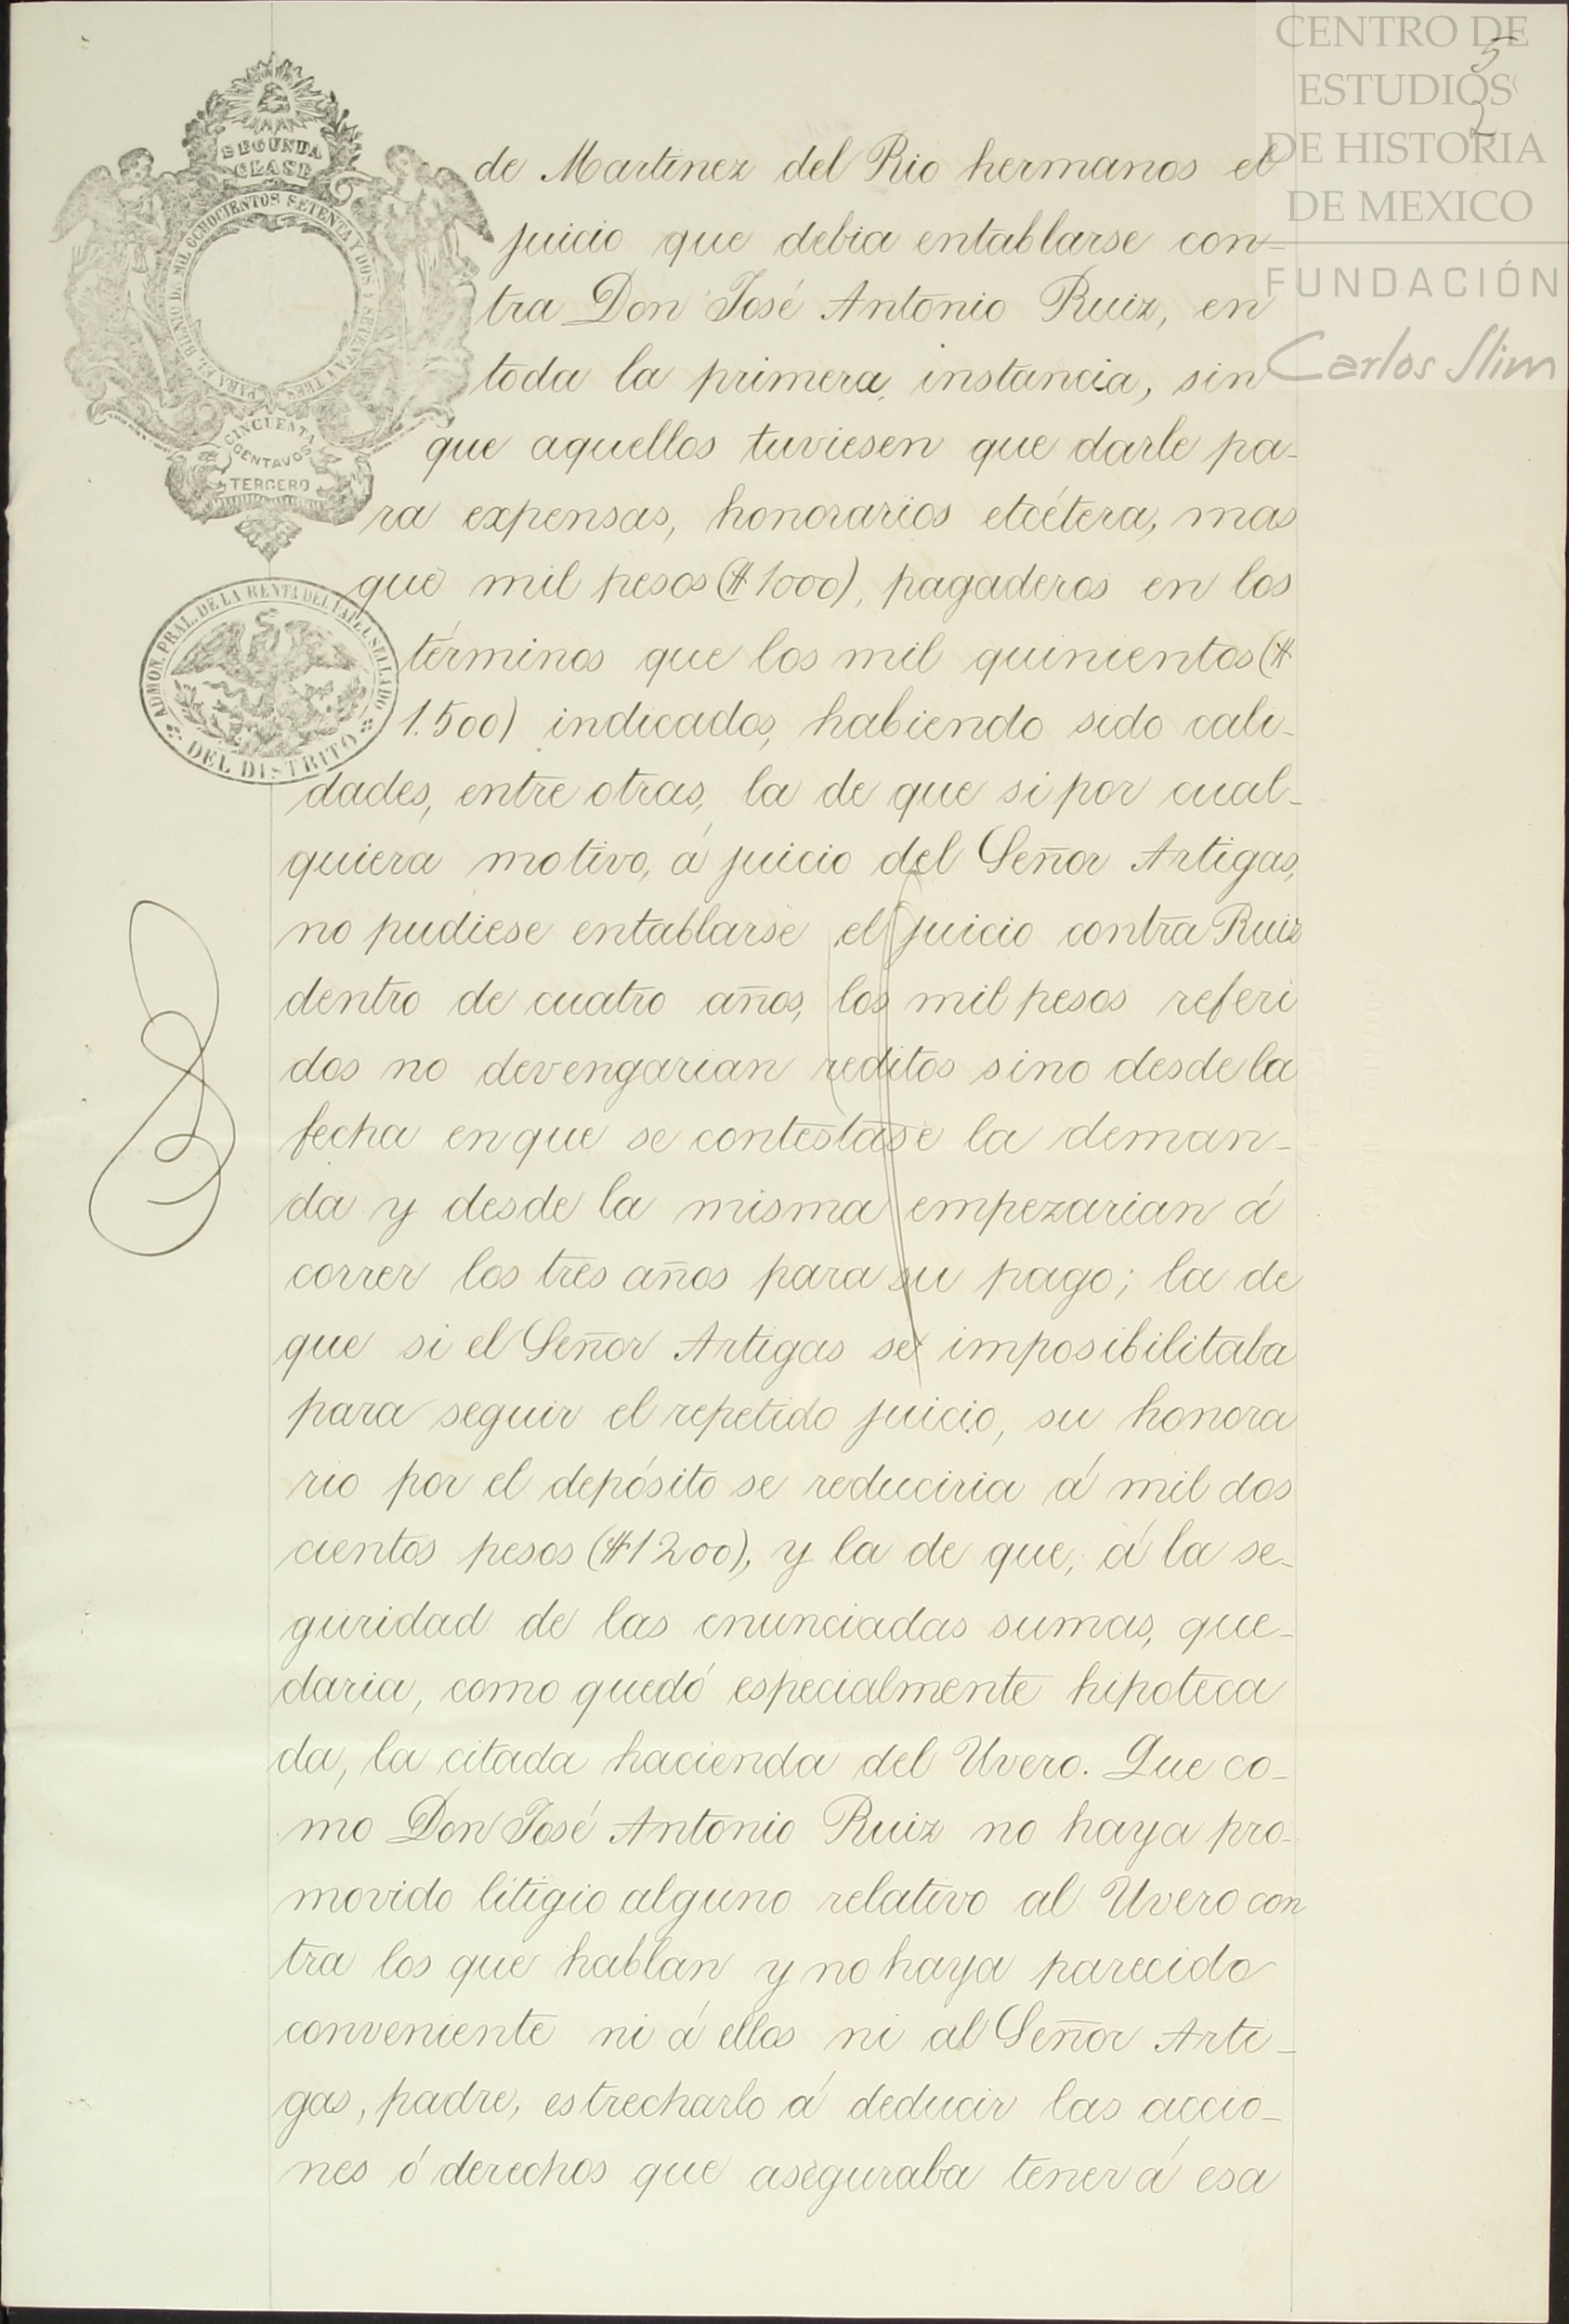 CENTRO DE
ESTUDIOS
DE HISTORIA
DE MEXICO
FUNDACIÓN
Carlos Slim
5
2
SEGUNDA
CLASE
PARA EL BIENIO DE MIL OCHOCIENTOS SETENTA Y DOS Y SETENTA Y TRES
CINCUENTA
CENTAVOS
TERCERO
ADMON. PRAL. DE LA RENTA DEL PAPEL SELLADO
DEL DISTRITO
de Martinez del Rio hermanos el
juicio que debia entablarse con-
tra Don José Antonio Ruiz, en
toda la primera instancia, sin
que aquellos tuviesen que darle pa-
ra expensas, honorarios etcétera, mas
que mil pesos ($1000), pagaderos en los
términos que los mil quinientos ($
1.500) indicados, habiendo sido cali-
dades, entre otras, la de que si por cual-
quiera motivo, á juicio del Señor Artigas,
no pudiese entablarse el juicio contra Ruiz
dentro de cuatro años, los mil pesos referi
dos no devengarian reditos sino desde la
fecha en que se contestase la deman-
da y desde la misma empezarian á
correr los tres años para su pago; la de
que si el Señor Artigas se imposibilitaba
para seguir el repetido juicio, su honora
rio por el depósito se reduciria á mil dos
cientos pesos ($1200), y la de que, á la se-
guridad de las enunciadas sumas, que-
daria, como quedó especialmente hipoteca
da, la citada hacienda del Uvero. Que co-
mo Don José Antonio Ruiz no haya pro-
movido litigio alguno relativo al Uvero con
tra los que hablan y no haya parecido
conveniente ni á ellos ni al Señor Arti-
gas, padre, estrecharlo á deducir las accio-
nes ó derechos que aseguraba tener á esa